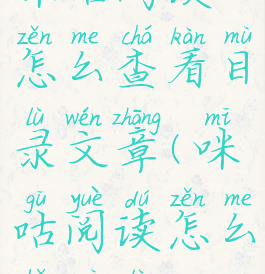 zěn me chá kàn mù
怎么查看目
lù wén zhāng mī
录文章(咪
gū yuè dú zěn me
咕阅读怎么